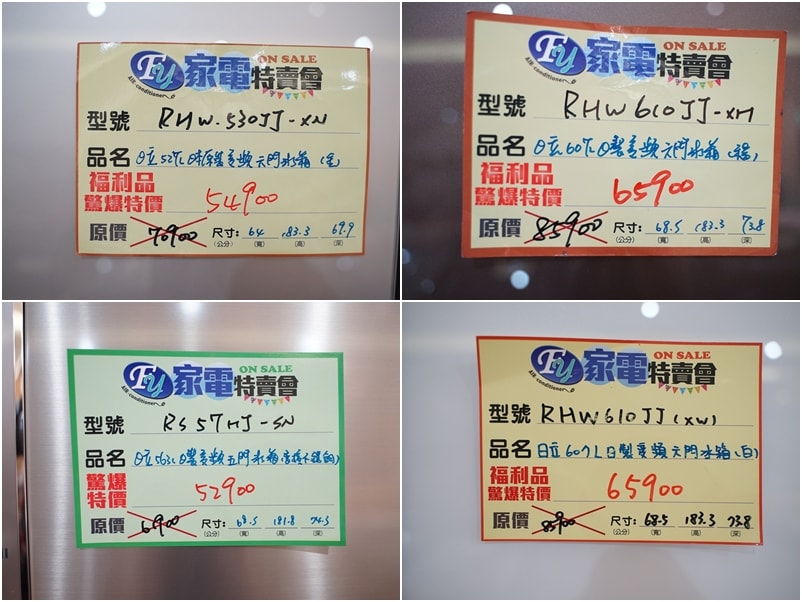 FU 家電特賣會 ON SALE
Air conditioner
型號 RHW-530JJ-XN
品名 日立527L日本原裝變頻六門冰箱(
福利品
驚爆特價 54900
原價 70900 尺寸: 64 183.3 69.9
(公分) (寬) (高) (深)
FU 家電特賣會 ON SALE
Air conditioner
型號 RHW610JJ-XH
品名 日立607L日製變頻六門冰箱
福利品
驚爆特價 65900
原價 85900 尺寸: 68.5 183.3 73.8
(公分) (寬) (高) (深)
FU 家電特賣會 ON SALE
Air conditioner
型號 RS57HJ-SN
品名 日立563L日製變頻五門冰箱
驚爆
特價 52900
原價 尺寸: 68.5 181.8 74.3
(公分) (寬) (高) (深)
FU 家電特賣會 ON SALE
Air conditioner
型號 RHW610JJ(XW)
品名 日立607L日製變頻六門冰箱(白)
福利品
驚爆特價 65900
原價 85900 尺寸: 68.5 183.3 73.8
(公分) (寬) (高) (深)